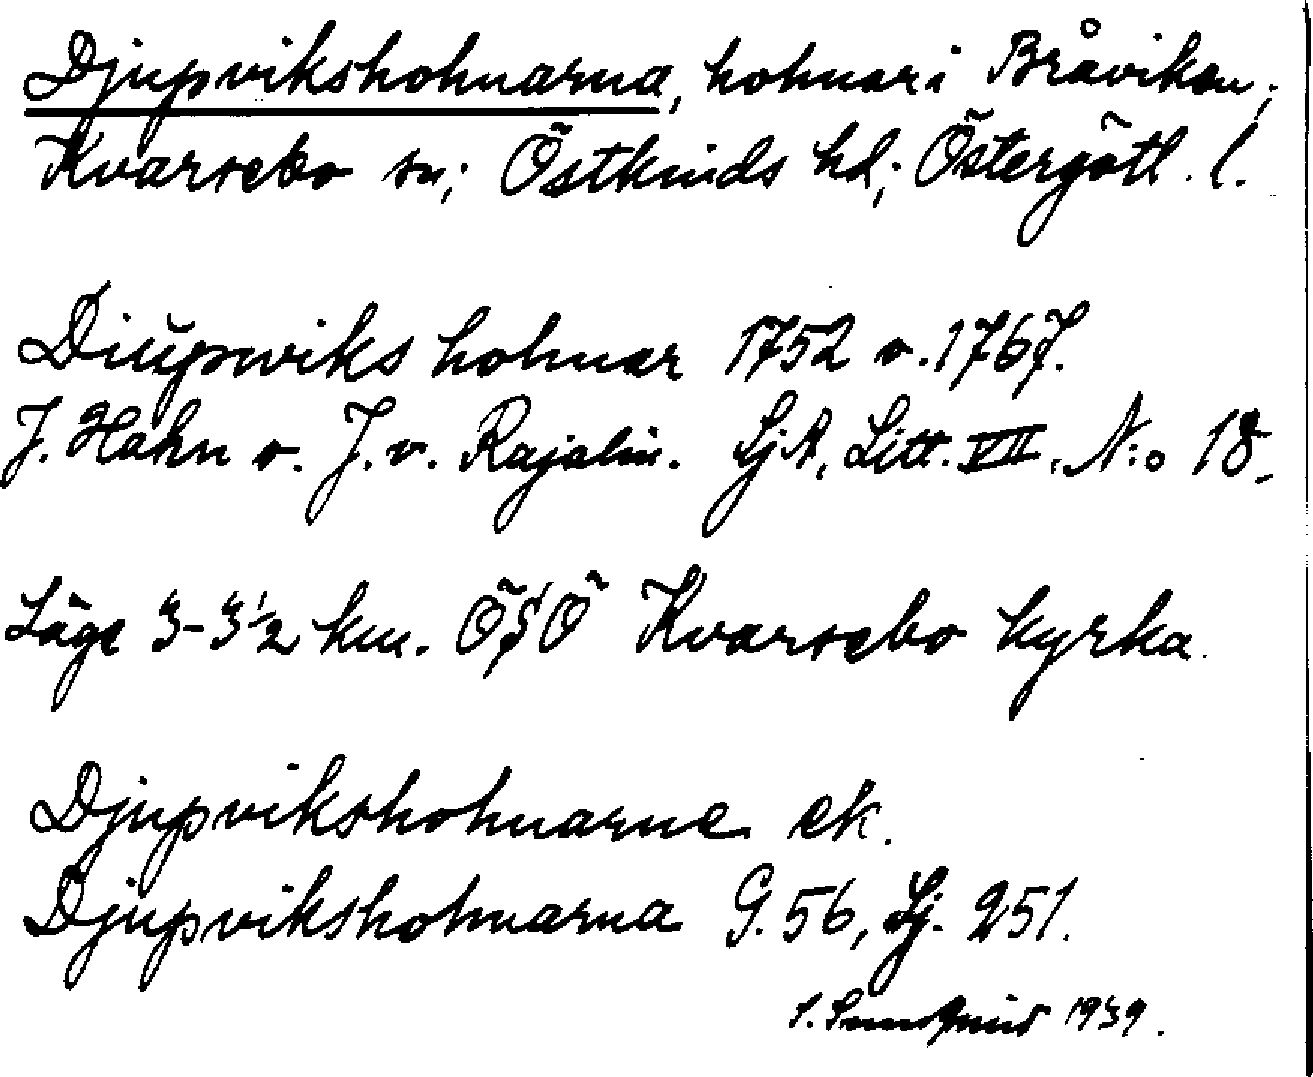 Djupviksholmarna, holmar i Bråviken;
Kvarsebo sn; Östkinds hd; Östergötl. l.
Diupwiks holmar 1752 o. 1767.
J. Hahn o. J. v. Rajalin. SjA, Litt. VII, N:o 18.
Läge 3-3½ km. ÖSÖ Kvarsebo kyrka.
Djupviksholmarne ek.
Djupviksholmarna G. 56, Sj. 251.
1939.